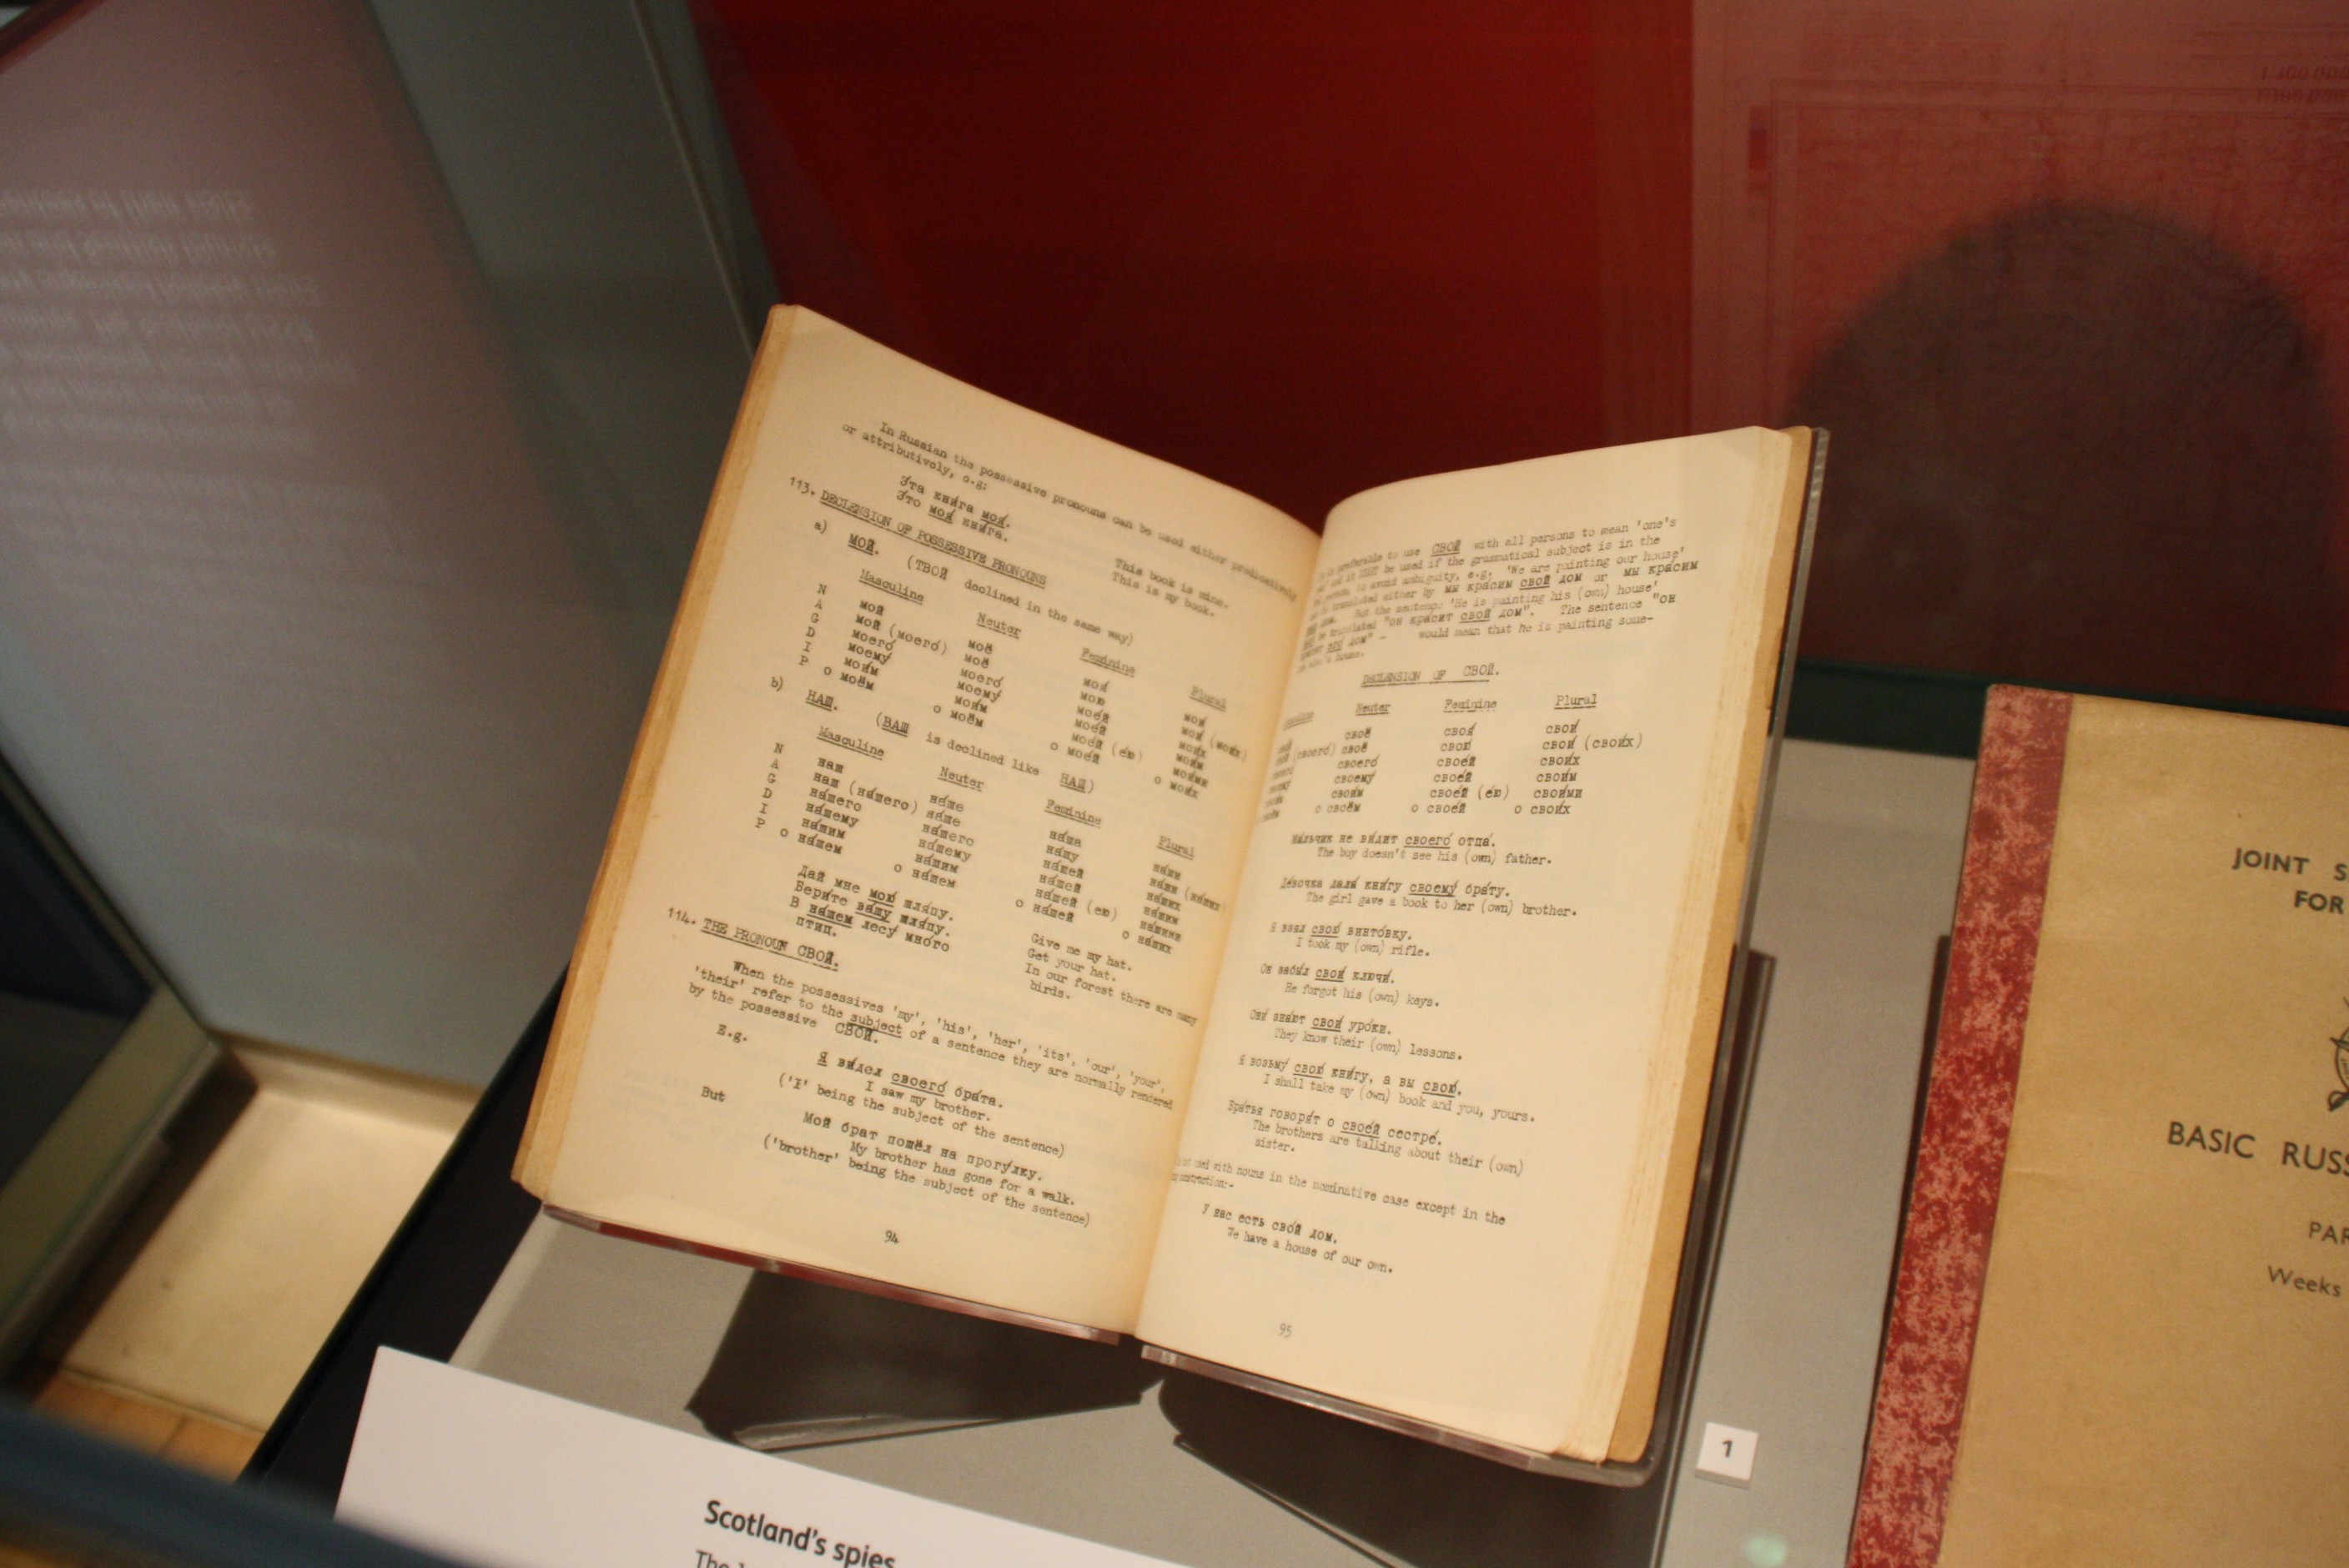 In Russian the possessive pronouns can be used either predicatively
or attributively, e.g:
Э́та кни́га моя́. This book is mine.
Э́то моя́ кни́га. This is my book.
113. DECLENSION OF POSSESSIVE PRONOUNS
a) МОЙ. (ТВОЙ declined in the same way)
Masculine Neuter Feminine Plural
N мой моё моя́ мои́
A мой (моего́) моё мою́ мои́ (мои́х)
G моего́ моего́ мое́й мои́х
D моему́ моему́ мое́й мои́м
I мои́м мои́м мое́й (е́ю) мои́ми
P о моём о моём о мое́й о мои́х
b) НАШ. (ВАШ is declined like НАШ)
Masculine Neuter Feminine Plural
N наш на́ше на́ша на́ши
A наш (на́шего) на́ше на́шу на́ши (на́ших)
G на́шего на́шего на́шей на́ших
D на́шему на́шему на́шей на́шим
I на́шим на́шим на́шей (ею) на́шими
P о на́шем о на́шем о на́шей о на́ших
Дай мне мою́ шля́пу. Give me my hat.
Бери́те ва́шу шля́пу. Get your hat.
В на́шем лесу́ мно́го In our forest there are many
птиц. birds.
114. THE PRONOUN СВОЙ.
When the possessives 'my', 'his', 'her', 'its', 'our', 'your',
'their' refer to the subject of a sentence they are normally rendered
by the possessive СВОЙ.
E.g. Я ви́дел своего́ бра́та.
I saw my brother.
('I' being the subject of the sentence)
But Мой брат пошёл на прогу́лку.
My brother has gone for a walk.
('brother' being the subject of the sentence)
94
preferable to use СВОЙ with all persons to mean 'one's
and it MUST be used if the grammatical subject is in the
person, to avoid ambiguity, e.g. 'We are painting our house'
translated either by мы кра́сим свой дом or мы кра́сим
дом. But the sentence 'He is painting his (own) house'
be translated "он кра́сит свой дом". The sentence "он
его́ дом" - would mean that he is painting some-
else's house.
DECLENSION OF СВОЙ.
Neuter Feminine Plural
своё своя́ свои́
(своего́) своё свою́ свои́ (свои́х)
своего́ свое́й свои́х
своему́ свое́й свои́м
свои́м свое́й (е́ю) свои́ми
о своём о свое́й о свои́х
Ма́льчик не ви́дит своего́ отца́.
The boy doesn't see his (own) father.
Де́вочка дала́ кни́гу своему́ бра́ту.
The girl gave a book to her (own) brother.
Я взял свою́ винто́вку.
I took my (own) rifle.
Он забы́л свои́ ключи́.
He forgot his (own) keys.
Они́ зна́ют свои́ уро́ки.
They know their (own) lessons.
Я возьму́ свою́ кни́гу, а вы свою́.
I shall take my (own) book and you, yours.
Бра́тья говоря́т о свое́й сестре́.
The brothers are talking about their (own)
sister.
used with nouns in the nominative case except in the
construction:-
У нас есть сво́й дом.
We have a house of our own.
95
1
JOINT S
FOR
BASIC RUSS
PAR
Weeks
Scotland's spies
The